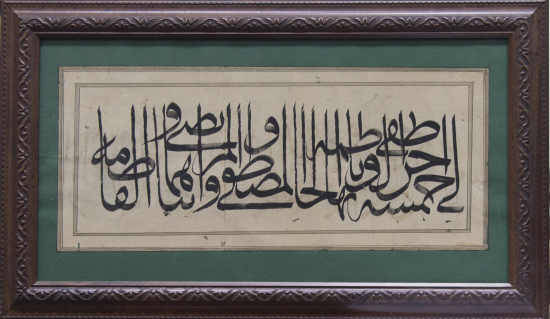 لى خمسة اطفى بها حر الوبا الحاطمه المصطفى والمرتضى وابناهما والفاطمه